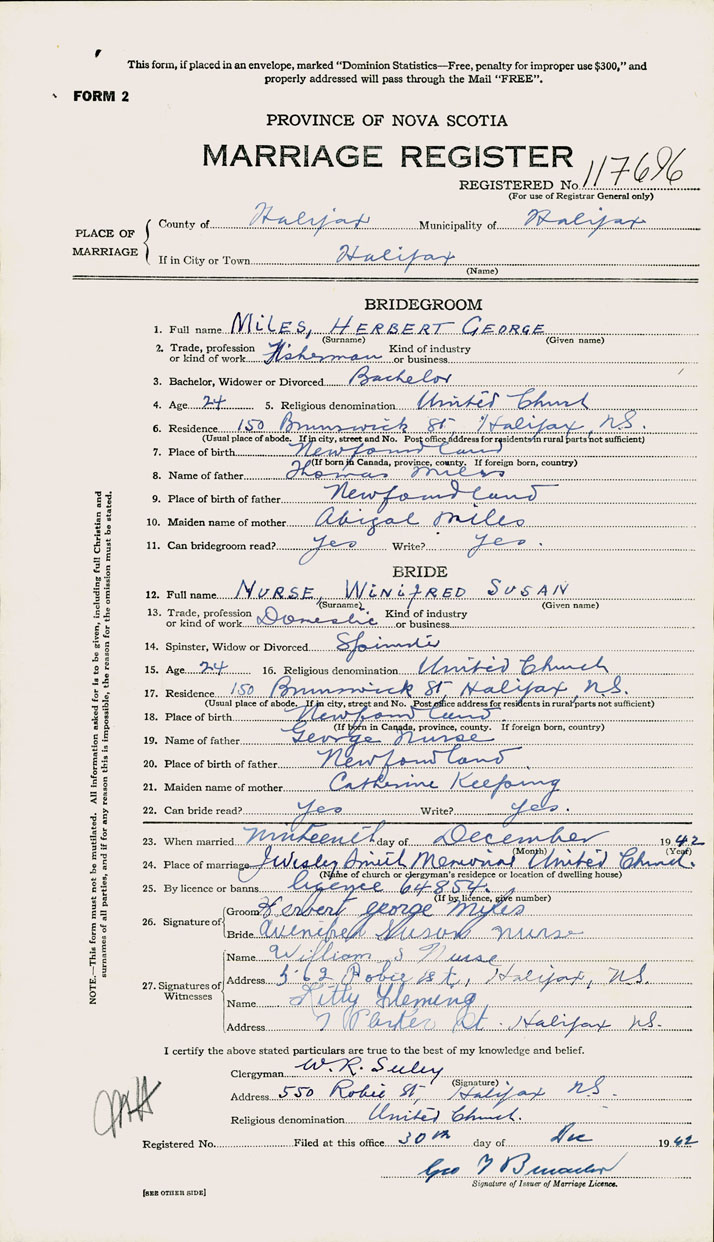 This form, if placed in an envelope, marked "Dominion Statistics—Free, penalty for improper use $300," and
properly addressed will pass through the Mail "FREE".
FORM 2
PROVINCE OF NOVA SCOTIA
MARRIAGE REGISTER
REGISTERED No. 117696
(For use of Registrar General only)
PLACE OF MARRIAGE
County of Halifax Municipality of Halifax
If in City or Town Halifax
(Name)
BRIDEGROOM
1. Full name MILES, HERBERT GEORGE
(Surname) (Given name)
2. Trade, profession or kind of work Fisherman Kind of industry or business
3. Bachelor, Widower or Divorced Bachelor
4. Age 24 5. Religious denomination United Church
6. Residence 150 Brunswick St Halifax, N.S.
(Usual place of abode. If in city, street and No. Post office address for residents in rural parts not sufficient)
7. Place of birth Newfoundland
(If born in Canada, province, county. If foreign born, country)
8. Name of father Thomas Miles
9. Place of birth of father Newfoundland
10. Maiden name of mother Abigal Miles
11. Can bridegroom read? yes Write? yes.
BRIDE
12. Full name NURSE, WINIFRED SUSAN
(Surname) (Given name)
13. Trade, profession or kind of work Domestic Kind of industry or business
14. Spinster, Widow or Divorced Spinster
15. Age 24 16. Religious denomination United Church
17. Residence 150 Brunswick St Halifax, N.S.
(Usual place of abode. If in city, street and No. Post office address for residents in rural parts not sufficient)
18. Place of birth Newfoundland
(If born in Canada, province, county. If foreign born, country)
19. Name of father George Nurse
20. Place of birth of father Newfoundland
21. Maiden name of mother Catherine Keeping
22. Can bride read? Yes Write? yes.
23. When married nineteenth day of December 1942
(Month) (Year)
24. Place of marriage J Wesley Smith Memorial United Church.
(Name of church or clergyman's residence or location of dwelling house)
25. By licence or banns licence 64854.
(If by licence, give number)
26. Signature of
Groom Herbert george Myles
Bride Winifred Susan Nurse
27. Signatures of Witnesses
Name William S Nurse
Address 562 Robie St, Halifax, N.S.
Name Kitty Fleming
Address 7 Parker St. Halifax N.S.
I certify the above stated particulars are true to the best of my knowledge and belief.
Clergyman W. R. Seeley
(Signature)
Address 550 Robie St, Halifax N.S.
Religious denomination United Church.
Registered No. Filed at this office 30th day of Dec 1942
Geo
Signature of Issuer of Marriage Licence.
[SEE OTHER SIDE]
NOTE.—This form must not be mutilated. All information asked for is to be given, including full Christian and
surnames of all parties, and if for any reason this is impossible, the reason for the omission must be stated.